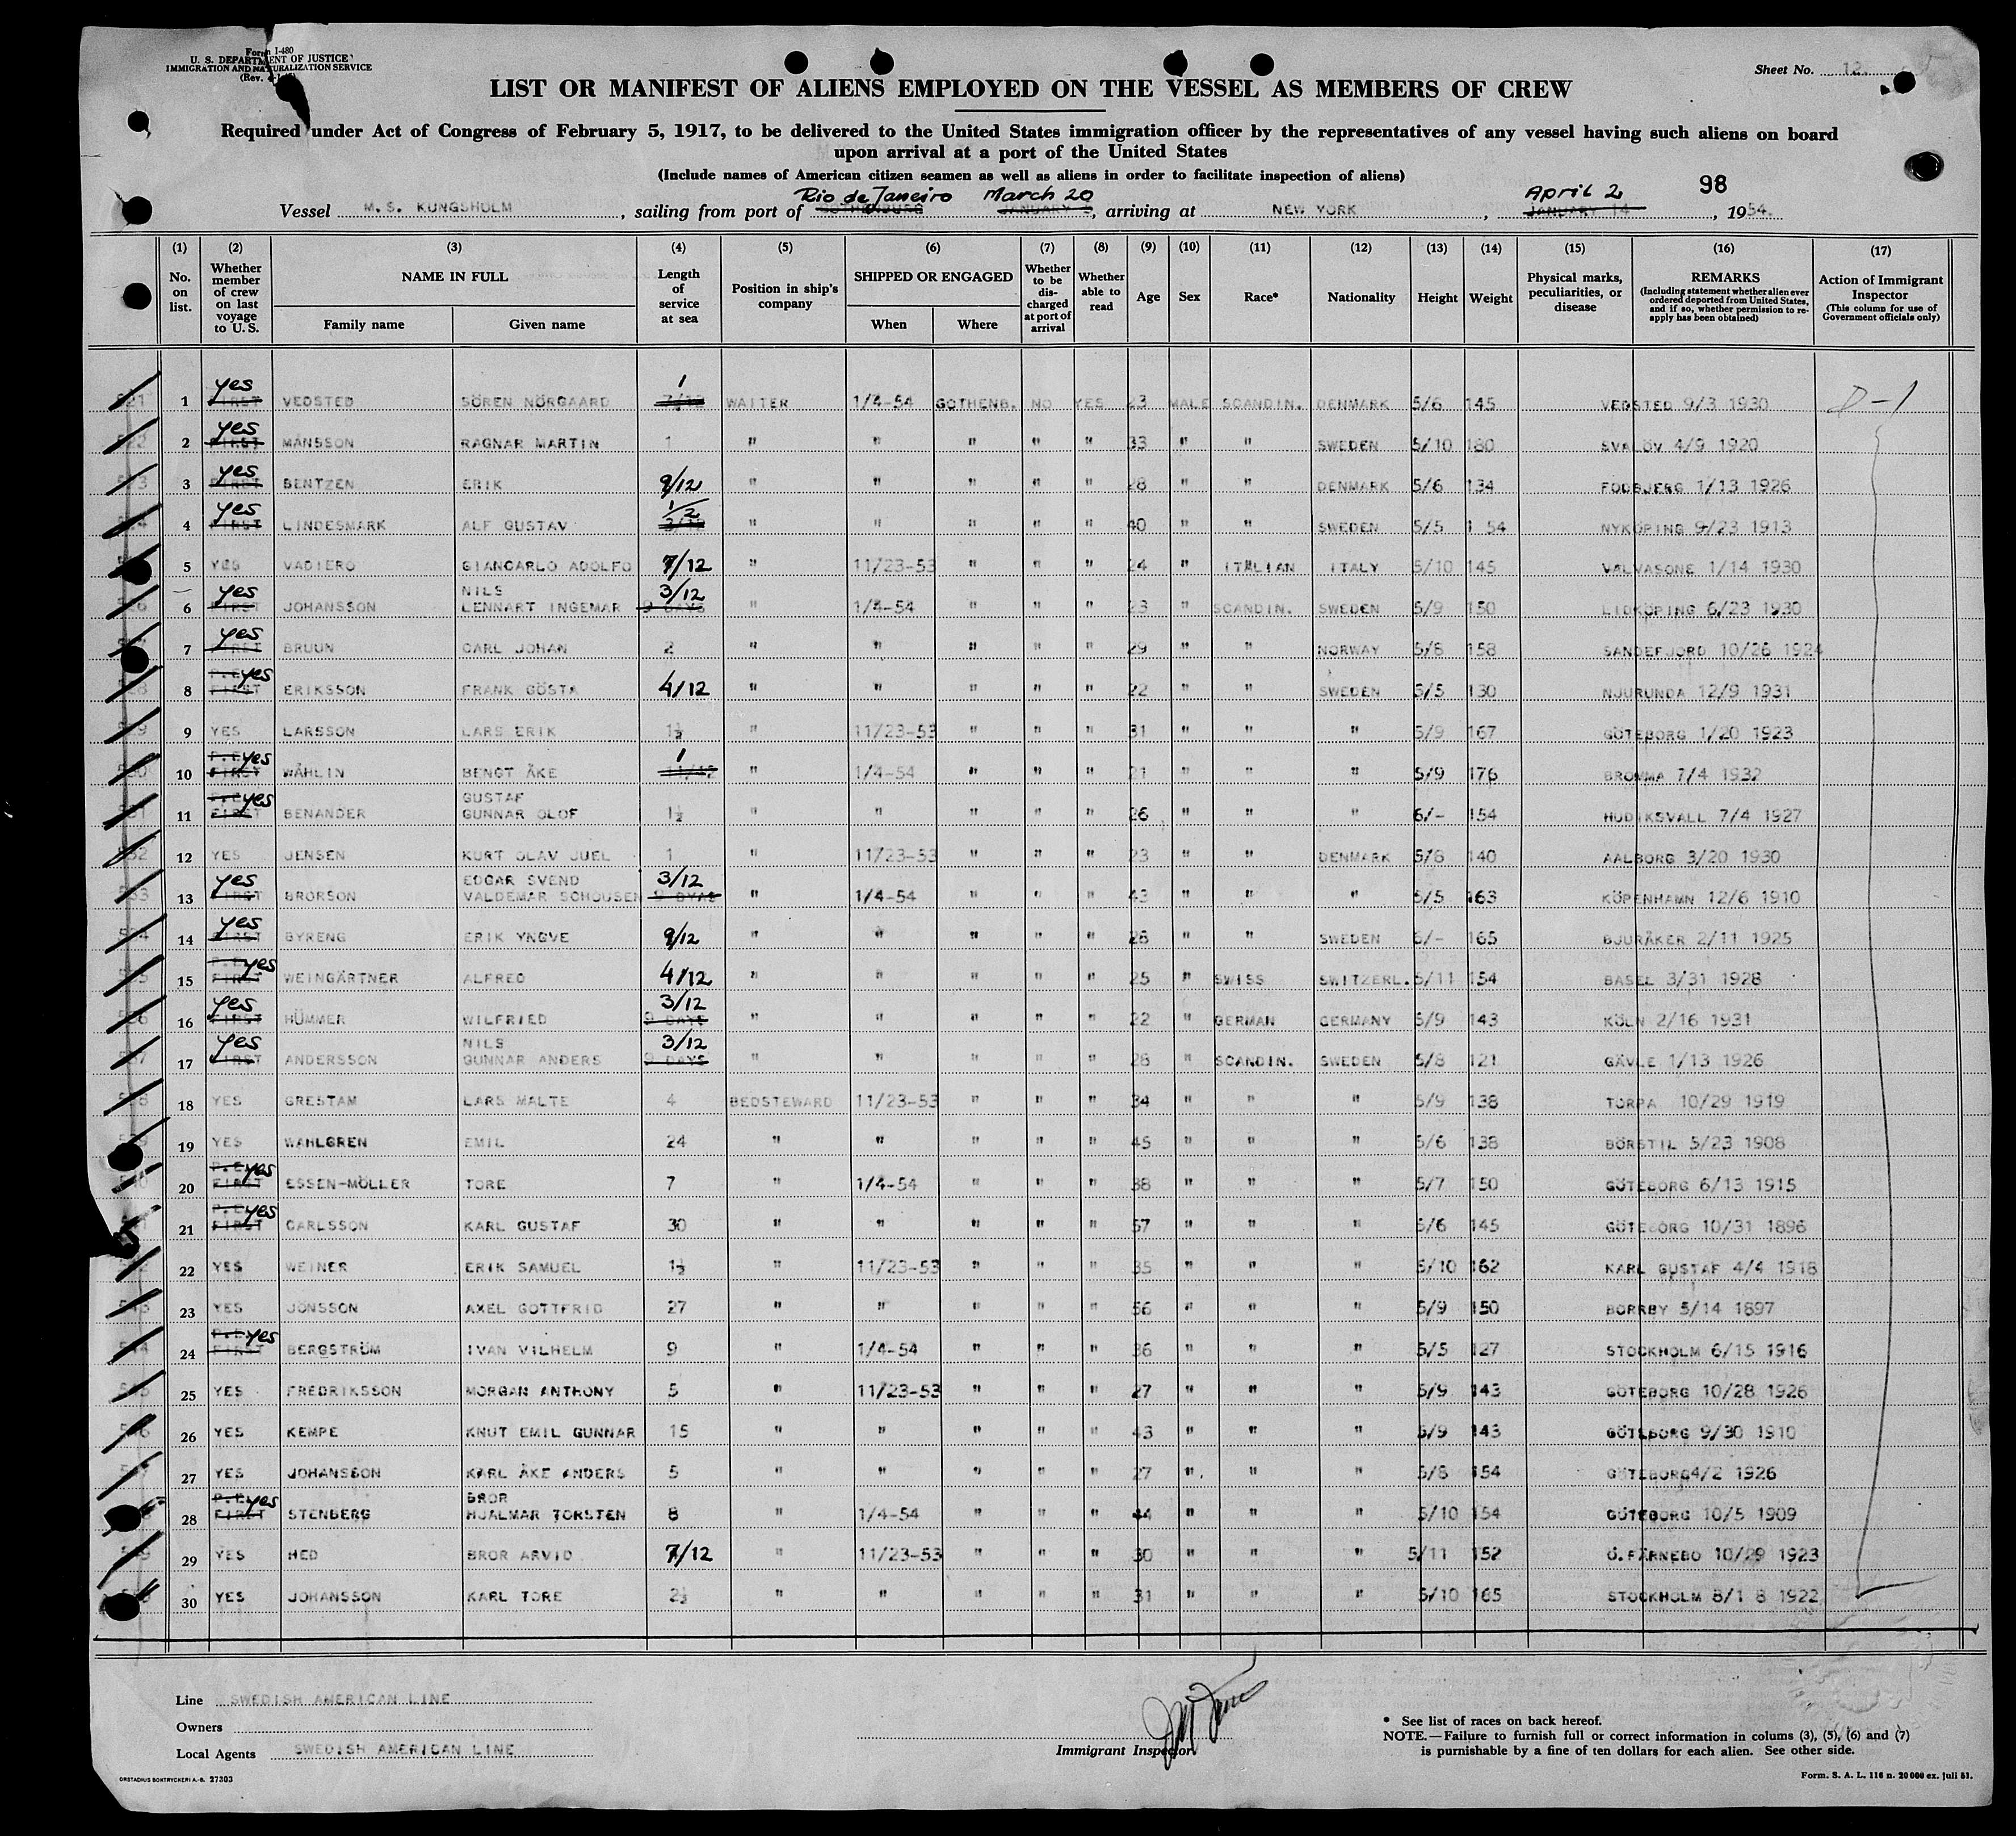 Form I-480
U. S. DEPARTMENT OF JUSTICE
IMMIGRATION AND NATURALIZATION SERVICE
(Rev.
Sheet No. 12.
LIST OR MANIFEST OF ALIENS EMPLOYED ON THE VESSEL AS MEMBERS OF CREW
Required under Act of Congress of February 5, 1917, to be delivered to the United States immigration officer by the representatives of any vessel having such aliens on board
upon arrival at a port of the United States
(Include names of American citizen seamen as well as aliens in order to facilitate inspection of aliens)
98
Rio de Janeiro March 20 April 2
Vessel M.S. KUNGSHOLM, sailing from port of GOTHENBURG JANUARY, arriving at NEW YORK, JANUARY 14, 1954.
(1) (2) (3) (4) (5) (6) (7) (8) (9) (10) (11) (12) (13) (14) (15) (16) (17)
No. on list. Whether member of crew on last voyage to U. S. NAME IN FULL Family name Given name Length of service at sea Position in ship's company SHIPPED OR ENGAGED When Where Whether to be discharged at port of arrival Whether able to read Age Sex Race* Nationality Height Weight Physical marks, peculiarities, or disease REMARKS (Including statement whether alien ever ordered deported from United States, and if so, whether permission to re-apply has been obtained) Action of Immigrant Inspector (This column for use of Government officials only)
1 yes FIRST VEDSTED SÖREN NÖRGAARD 1 WAITER 1/4-54 GOTHENB. NO YES 23 MALE SCANDIN. DENMARK 5/6 145 VEDSTED 9/3 1930 D-1
2 yes FIRST MÅNSSON RAGNAR MARTIN 1 " " " " " 33 " " SWEDEN 5/10 180 SVALÖV 4/9 1920
3 yes FIRST BENTZEN ERIK 9/12 " " " " " 28 " " DENMARK 5/6 134 FODBJERG 1/13 1926
4 yes FIRST LINDESMARK ALF GUSTAV 1/2 " " " " " 40 " " SWEDEN 5/5 1 54 NYKÖPING 9/23 1913
5 YES VADIERO GIANCARLO ADOLFO 7/12 " 11/23-53 " " " 24 " ITALIAN ITALY 5/10 145 VALVASONE 1/14 1930
6 yes FIRST JOHANSSON NILS LENNART INGEMAR 3/12 9 DAYS " 1/4-54 " " " 23 " SCANDIN. SWEDEN 5/9 150 LIDKÖPING 6/23 1930
7 yes FIRST BRUUN CARL JOHAN 2 " " " " " 29 " " NORWAY 5/8 158 SANDEFJORD 10/26 1924
8 yes FIRST ERIKSSON FRANK GÖSTA 4/12 " " " " " 22 " " SWEDEN 5/5 130 NJURUNDA 12/9 1931
9 YES LARSSON LARS ERIK 1½ " 11/23-53 " " " 31 " " " 5/9 167 GÖTEBORG 1/20 1923
10 yes FIRST WÅHLIN BENGT ÅKE 1 11/12 " 1/4-54 " " " 21 " " " 5/9 176 BROMMA 7/4 1932
11 yes FIRST BENANDER GUSTAF GUNNAR OLOF 1½ " " " " " 26 " " " 6/- 154 HUDIKSVALL 7/4 1927
12 YES JENSEN KURT OLAV JUEL 1 " 11/23-53 " " " 23 " " DENMARK 5/8 140 AALBORG 3/20 1930
13 yes FIRST BRORSON EDGAR SVEND VALDEMAR SCHOUSEN 3/12 9 DYAS " 1/4-54 " " " 43 " " " 5/5 163 KÖPENHAMN 12/6 1910
14 yes FIRST BYRENG ERIK YNGVE 9/12 " " " " " 28 " " SWEDEN 6/- 165 BJURÅKER 2/11 1925
15 yes FIRST WEINGÄRTNER ALFRED 4/12 " " " " " 25 " SWISS SWITZERL. 5/11 154 BASEL 3/31 1928
16 yes FIRST HÜMMER WILFRIED 3/12 9 DAYS " " " " " 22 " GERMAN GERMANY 5/9 143 KÖLN 2/16 1931
17 yes FIRST ANDERSSON NILS GUNNAR ANDERS 3/12 9 DAYS " " " " " 28 " SCANDIN. SWEDEN 5/8 121 GÄVLE 1/13 1926
18 YES GRESTAM LARS MALTE 4 BEDSTEWARD 11/23-53 " " " 34 " " " 5/9 138 TORPA 10/29 1919
19 YES WAHLGREN EMIL 24 " " " " " 45 " " " 5/6 138 BÖRSTIL 5/23 1908
20 yes FIRST ESSEN-MÖLLER TORE 7 " 1/4-54 " " " 38 " " " 5/7 150 GÖTEBORG 6/13 1915
21 yes FIRST CARLSSON KARL GUSTAF 30 " " " " " 57 " " " 5/6 145 GÖTEBORG 10/31 1896
22 YES WEINER ERIK SAMUEL 1½ " 11/23-53 " " " 35 " " " 5/10 162 KARL GUSTAF 4/4 1918
23 YES JÖNSSON AXEL GOTTFRID 27 " " " " " 56 " " " 5/9 150 BORRBY 5/14 1897
24 yes FIRST BERGSTRÖM IVAN VILHELM 9 " 1/4-54 " " " 36 " " " 5/5 127 STOCKHOLM 6/15 1916
25 YES FREDRIKSSON MORGAN ANTHONY 5 " 11/23-53 " " " 27 " " " 5/9 143 GÖTEBORG 10/28 1926
26 YES KEMPE KNUT EMIL GUNNAR 15 " " " " " 43 " " " 5/9 143 GÖTEBORG 9/30 1910
27 YES JOHANSSON KARL ÅKE ANDERS 5 " " " " " 27 " " " 5/8 154 GÖTEBORG4/2 1926
28 yes FIRST STENBERG BROR HJALMAR TORSTEN 8 " 1/4-54 " " " 44 " " " 5/10 154 GÖTEBORG 10/5 1909
29 YES HED BROR ARVID 7/12 " 11/23-53 " " " 30 " " " 5/11 152 Ö.FÄRNEBO 10/29 1923
30 YES JOHANSSON KARL TORE 2½ " " " " " 31 " " " 5/10 165 STOCKHOLM 8/1 8 1922
Line SWEDISH AMERICAN LINE
Owners
Local Agents SWEDISH AMERICAN LINE
Immigrant Inspector
* See list of races on back hereof.
NOTE.—Failure to furnish full or correct information in colums (3), (5), (6) and (7)
is purnishable by a fine of ten dollars for each alien. See other side.
ORSTADIUS BOKTRYCKERI A.-B. 27303
Form. S. A. L. 116 n. 20000 ex. juli 51.